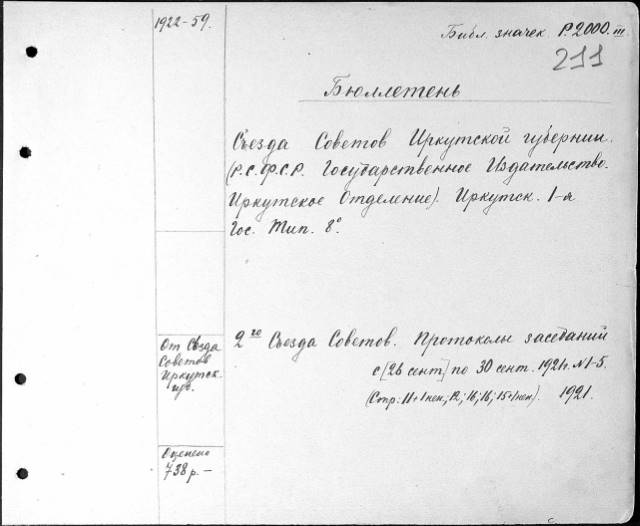 1922-59.
Библ. значек P.2000.III
211
Бюллетень
Съезда Советов Иркутской губернии.
(Р.С.Ф.С.Р. Государственное Издательство.
Иркутское Отделение). Иркутск. 1-я
Гос. Тип. 8°.
От Съезда
Советов
Иркутск.
губ.
2го Съезда Советов. Протоколы заседаний
с [26 сент.] по 30 сент. 1921г. №1-5.
(Стр.: 11+1нен.; 12; 16; 16; 15+1нен.). 1921.
Оценено
738 р.–
с.